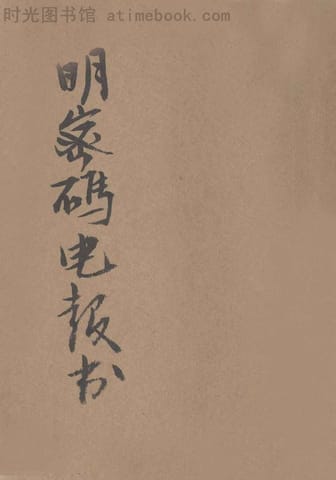 时光图书馆 - atimebook.com
明密码电报书